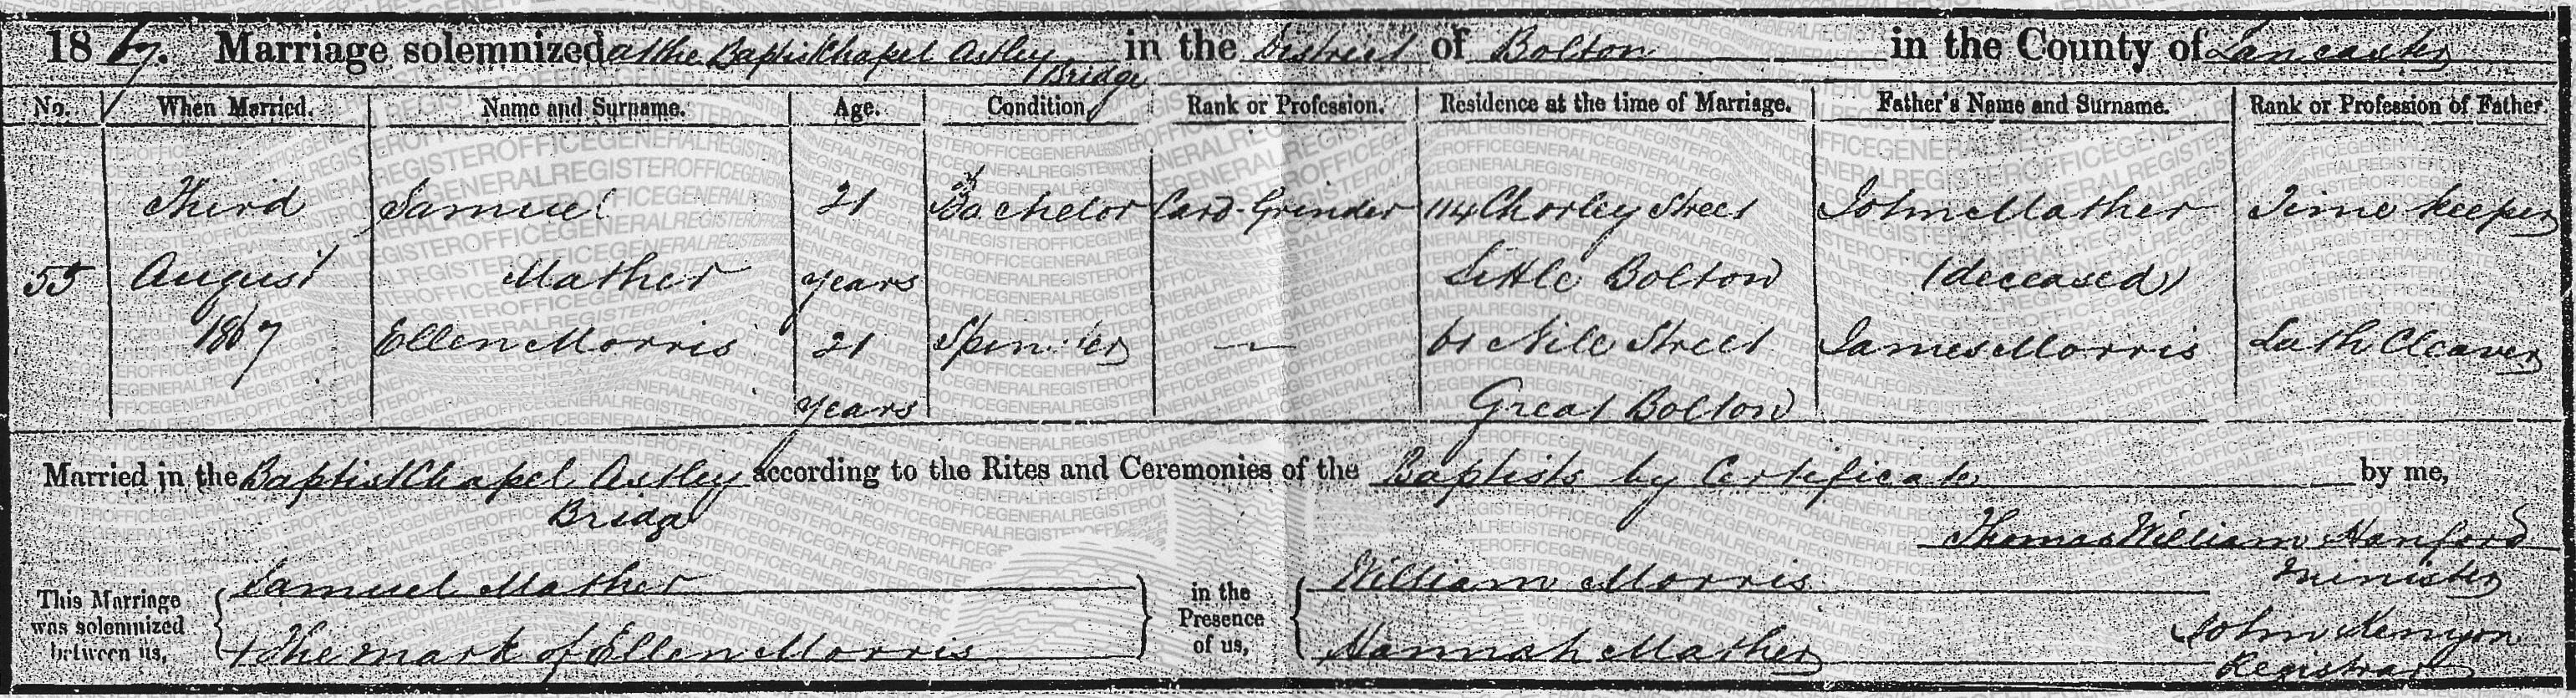 1867. Marriage solemnized at the Baptist Chapel Astley Bridge in the District of Bolton in the County of Lancaster
No. When Married. Name and Surname. Age. Condition Rank or Profession. Residence at the time of Marriage. Father's Name and Surname. Rank or Profession of Father.
Third Samuel 21 Bachelor Card-Grinder 114 Chorley Street John Mather Time keeper
55 August Mather years Little Bolton (deceased)
1867 Ellen Morris 21 Spinster — 61 Nile Street James Morris Lath Cleaver
years Great Bolton
Married in the Baptist Chapel Astley Bridge according to the Rites and Ceremonies of the Baptists by Certificate by me,
Thomas William Hanford
Minister
This Marriage was solemnized between us,
Samuel Mather
+ The mark of Ellen Morris
in the Presence of us,
William Morris
Hannah Mather
John Kenyon
Registrar
GENERALREGISTEROFFICE